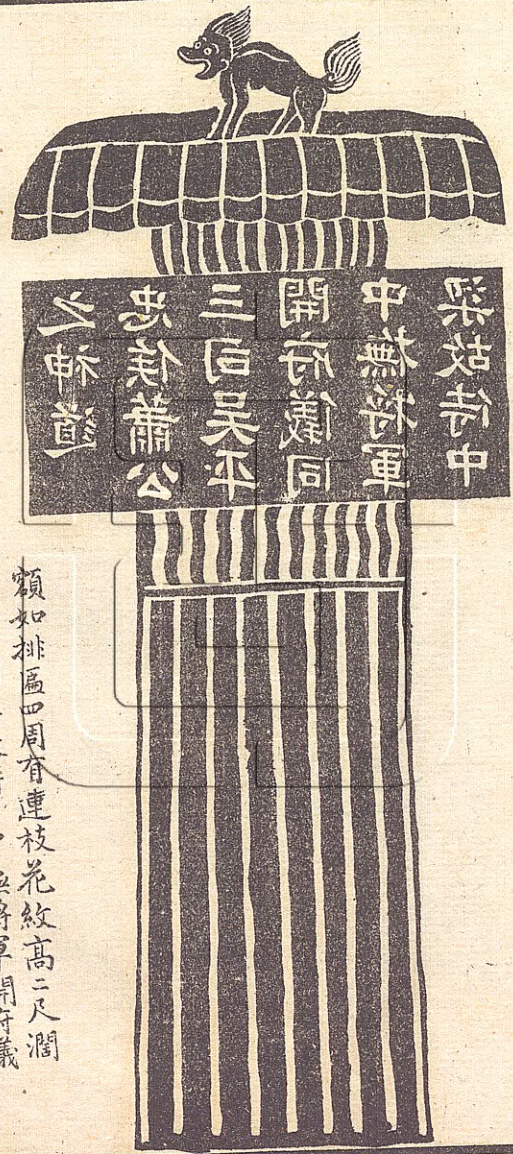 梁故侍中
中撫將軍
開府儀同
三司吳平
忠侯蕭公
之神道
額如排匾四周有連枝花紋高二尺濶
將軍開府儀